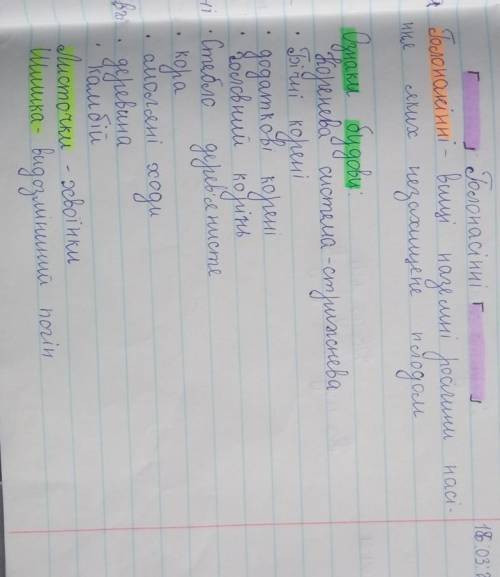 18.03.
Голонасінні
Голонасінні - вищі наземні рослини насі-
ння яких незахищене плодом
Ознаки будови:
Коренева система - стрижнева
• Бічні корені
• додаткові корені
• головний корінь
• Стебло дерев'янисте
• кора
• смоляні ходи
• деревина
• Камбій
Листочки - хвоїнки
Шишка - видозмінений погін